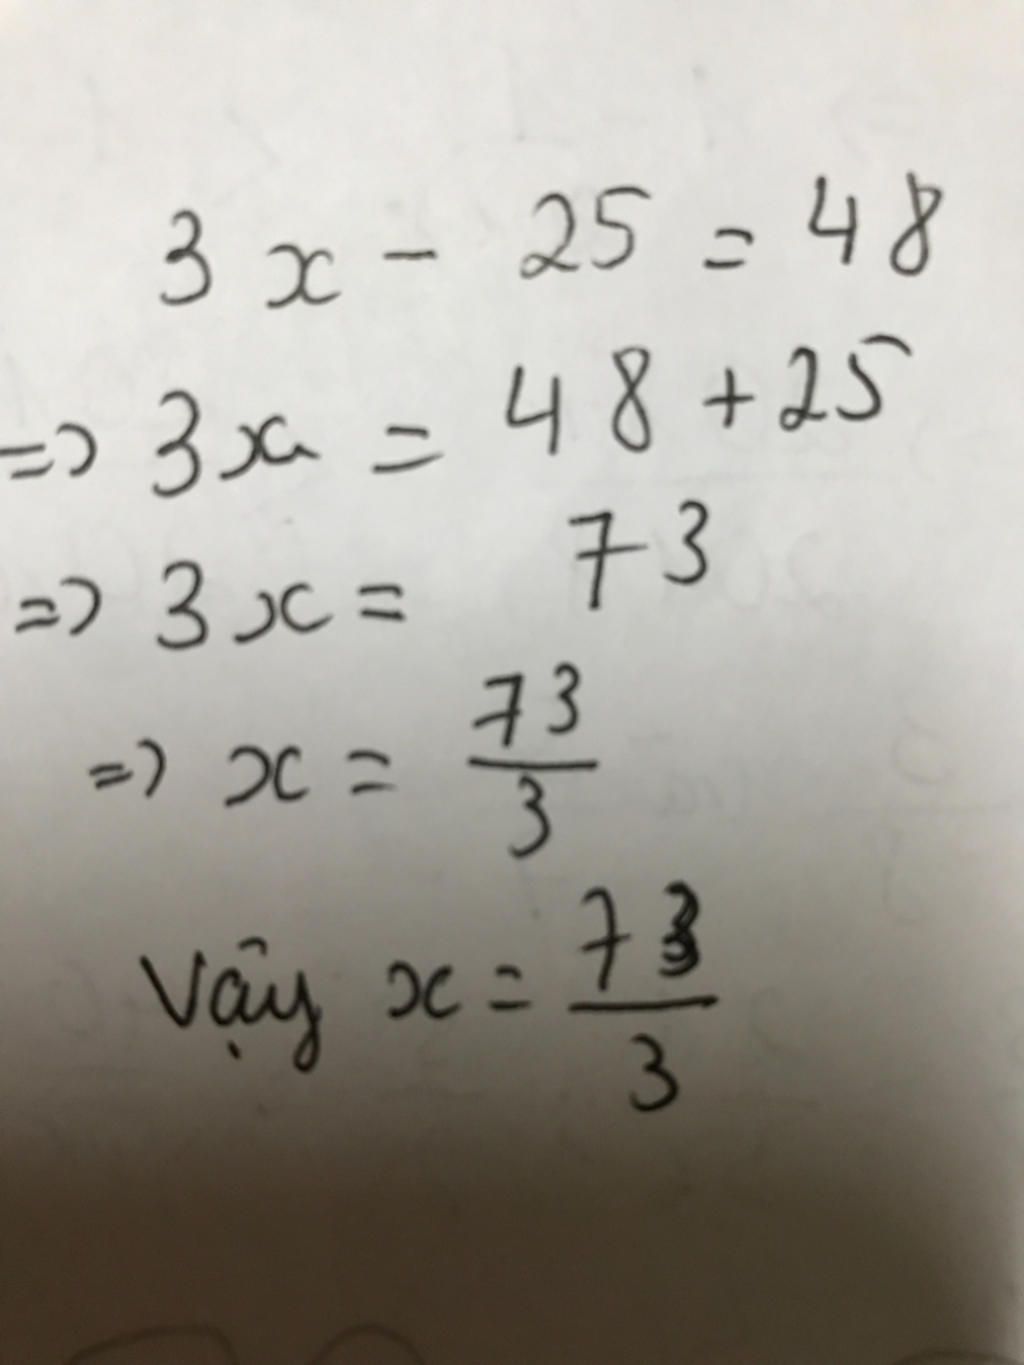 3x - 25 = 48
=> 3x = 48 + 25
=> 3x = 73
=> x = 73/3
Vậy x = 73/3